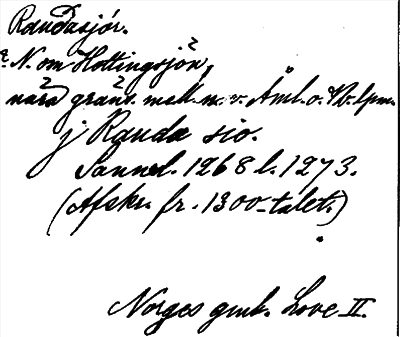 Raudasjór.
? N. om Hottingsjön,
nära gräns. mell. n. v. Åml. o. Vb. lpm.
j Rauda sio.
Sannol. 1268 l. 1273.
(Afskr. fr. 1300-talet.)
Norges gml. Love II.